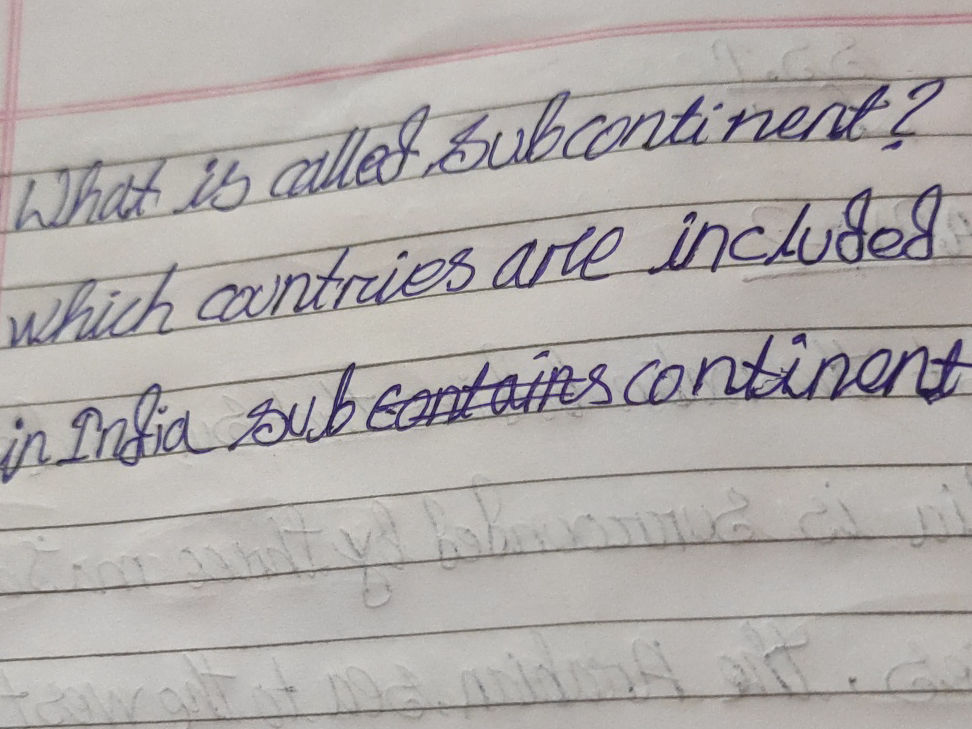 What is called subcontinent?
which countries are included
in India sub contains continent